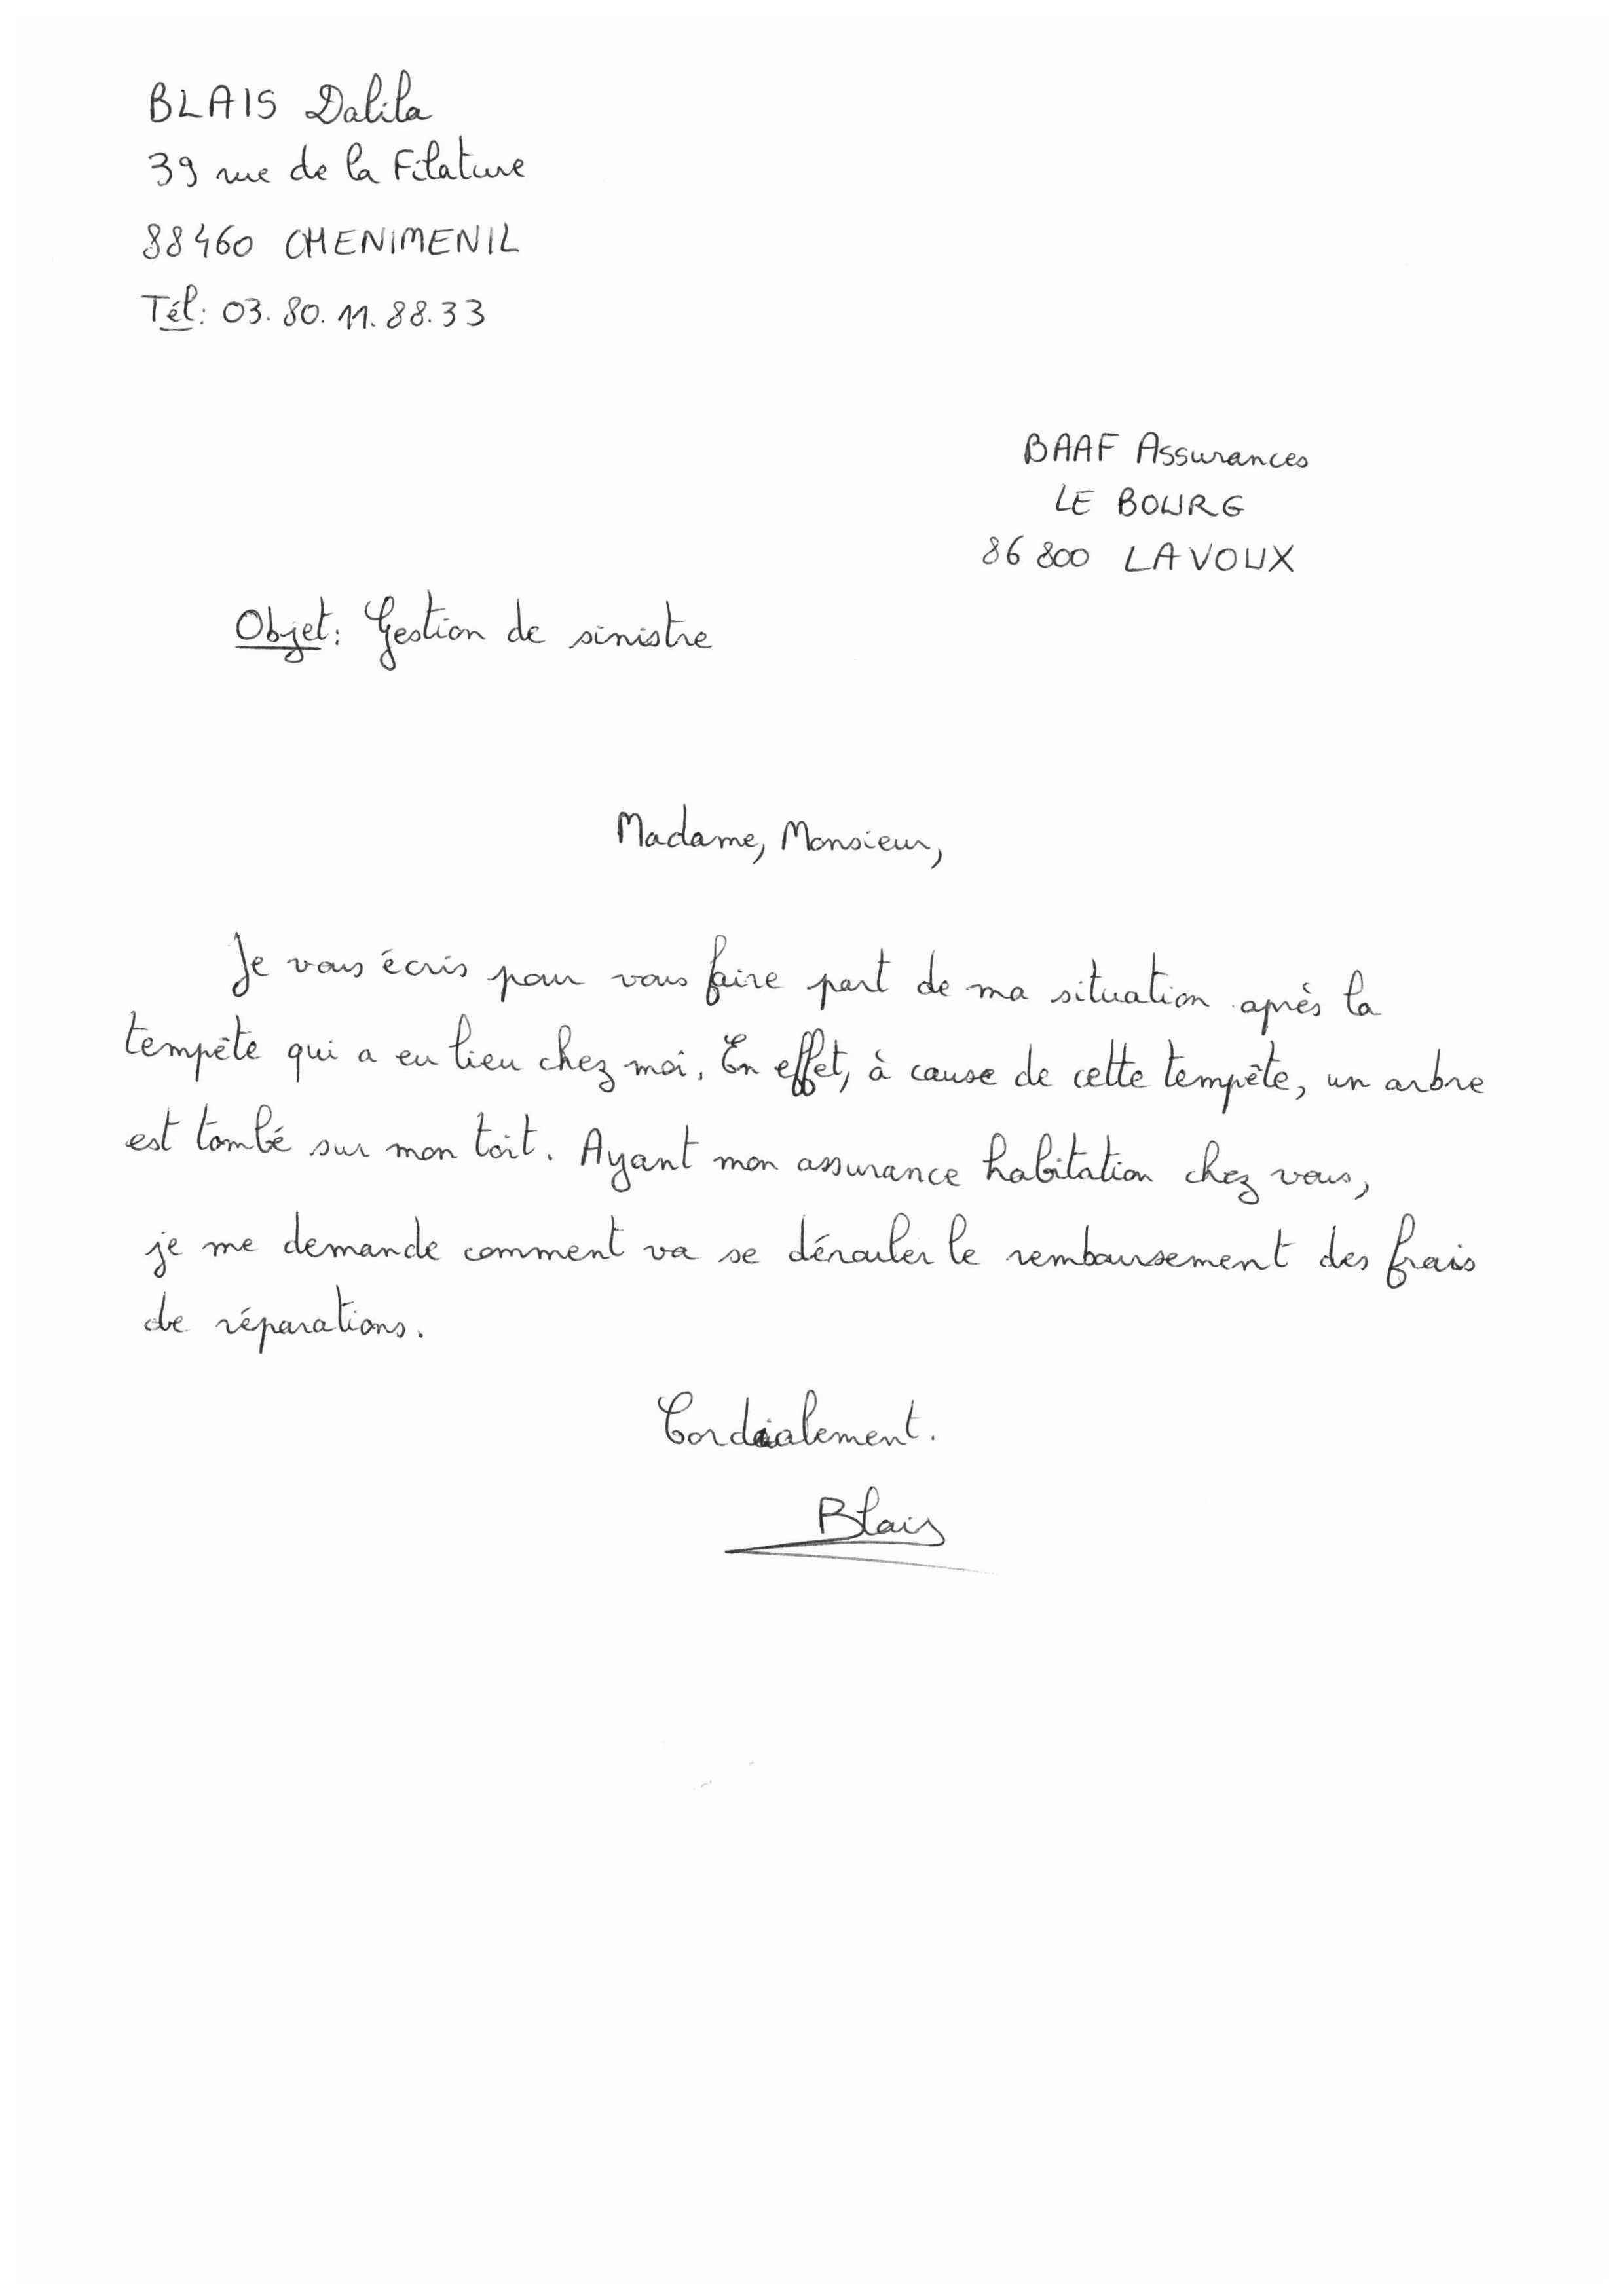 BLAIS Dalila
39 rue de la Filature
88460 CHENIMENIL
Tél: 03.80.11.88.33
BAAF Assurances
LE BOURG
86 800 LAVOUX
Objet: Gestion de sinistre
Madame, Monsieur,
Je vous écris pour vous faire part de ma situation après la
tempête qui a eu lieu chez moi. En effet, à cause de cette tempête, un arbre
est tombé sur mon toit. Ayant mon assurance habitation chez vous,
je me demande comment va se dérouler le remboursement des frais
de réparations.
Cordialement.
Blais